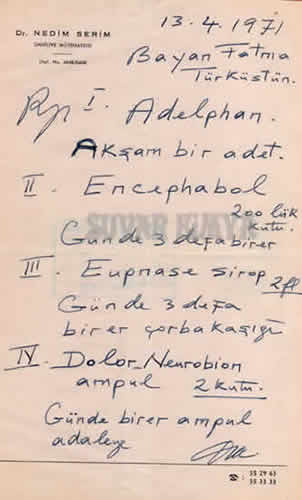 13.4.1971
Dr. NEDİM SERİM
DAHİLİYE MÜTEHASSISI
Bayan Fatma
Türküstün.
Rp I. Adelphan.
Akşam bir adet.
II. Encephabol
200 lük
kutu.
Günde 3 defa birer
III. Eupnase sirop 2 fl
Günde 3 defa
birer çorba kaşığı
IV. Dolor_Neurobion
ampul 2 kutu.
Günde birer ampul
adaleye
☎ : 55 29 63
55 33 33